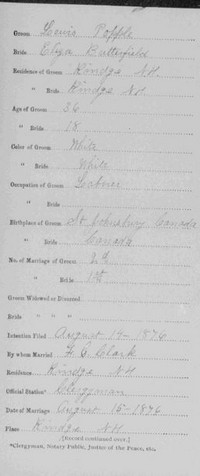 Groom Louis Popple
Bride Eliza Butterfield
Residence of Groom Hindge N.H.
" Bride Hindge N.H.
Age of Groom 36
" Bride 18
Color of Groom White
" Bride White
Occupation of Groom Laborer
" Bride
Birthplace of Groom St Johnsbury Canada
" Bride Canada
No. of Marriage of Groom 2d
" Bride 1st
Groom Widowed or Divorced
Bride " "
Intention Filed August 14-1876
By whom Married F. G. Clark
Residence Rindge N.H
Official Station* Clergyman
Date of Marriage August 15-1876
Place Rindge N.H
[Record continued over.]
*Clergyman, Notary Public, Justice of the Peace, etc.